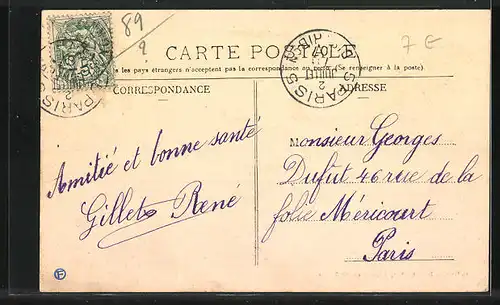 89
?
7 E
CARTE POSTALE
les pays étrangers n'acceptent pas la correspondance au recto. (Se renseigner à la poste).
CORRESPONDANCE
ADRESSE
PARIS
Amitié et bonne santé
Gillet René
Monsieur Georges
Dufut 46 rue de la
folie Méricourt
Paris
F